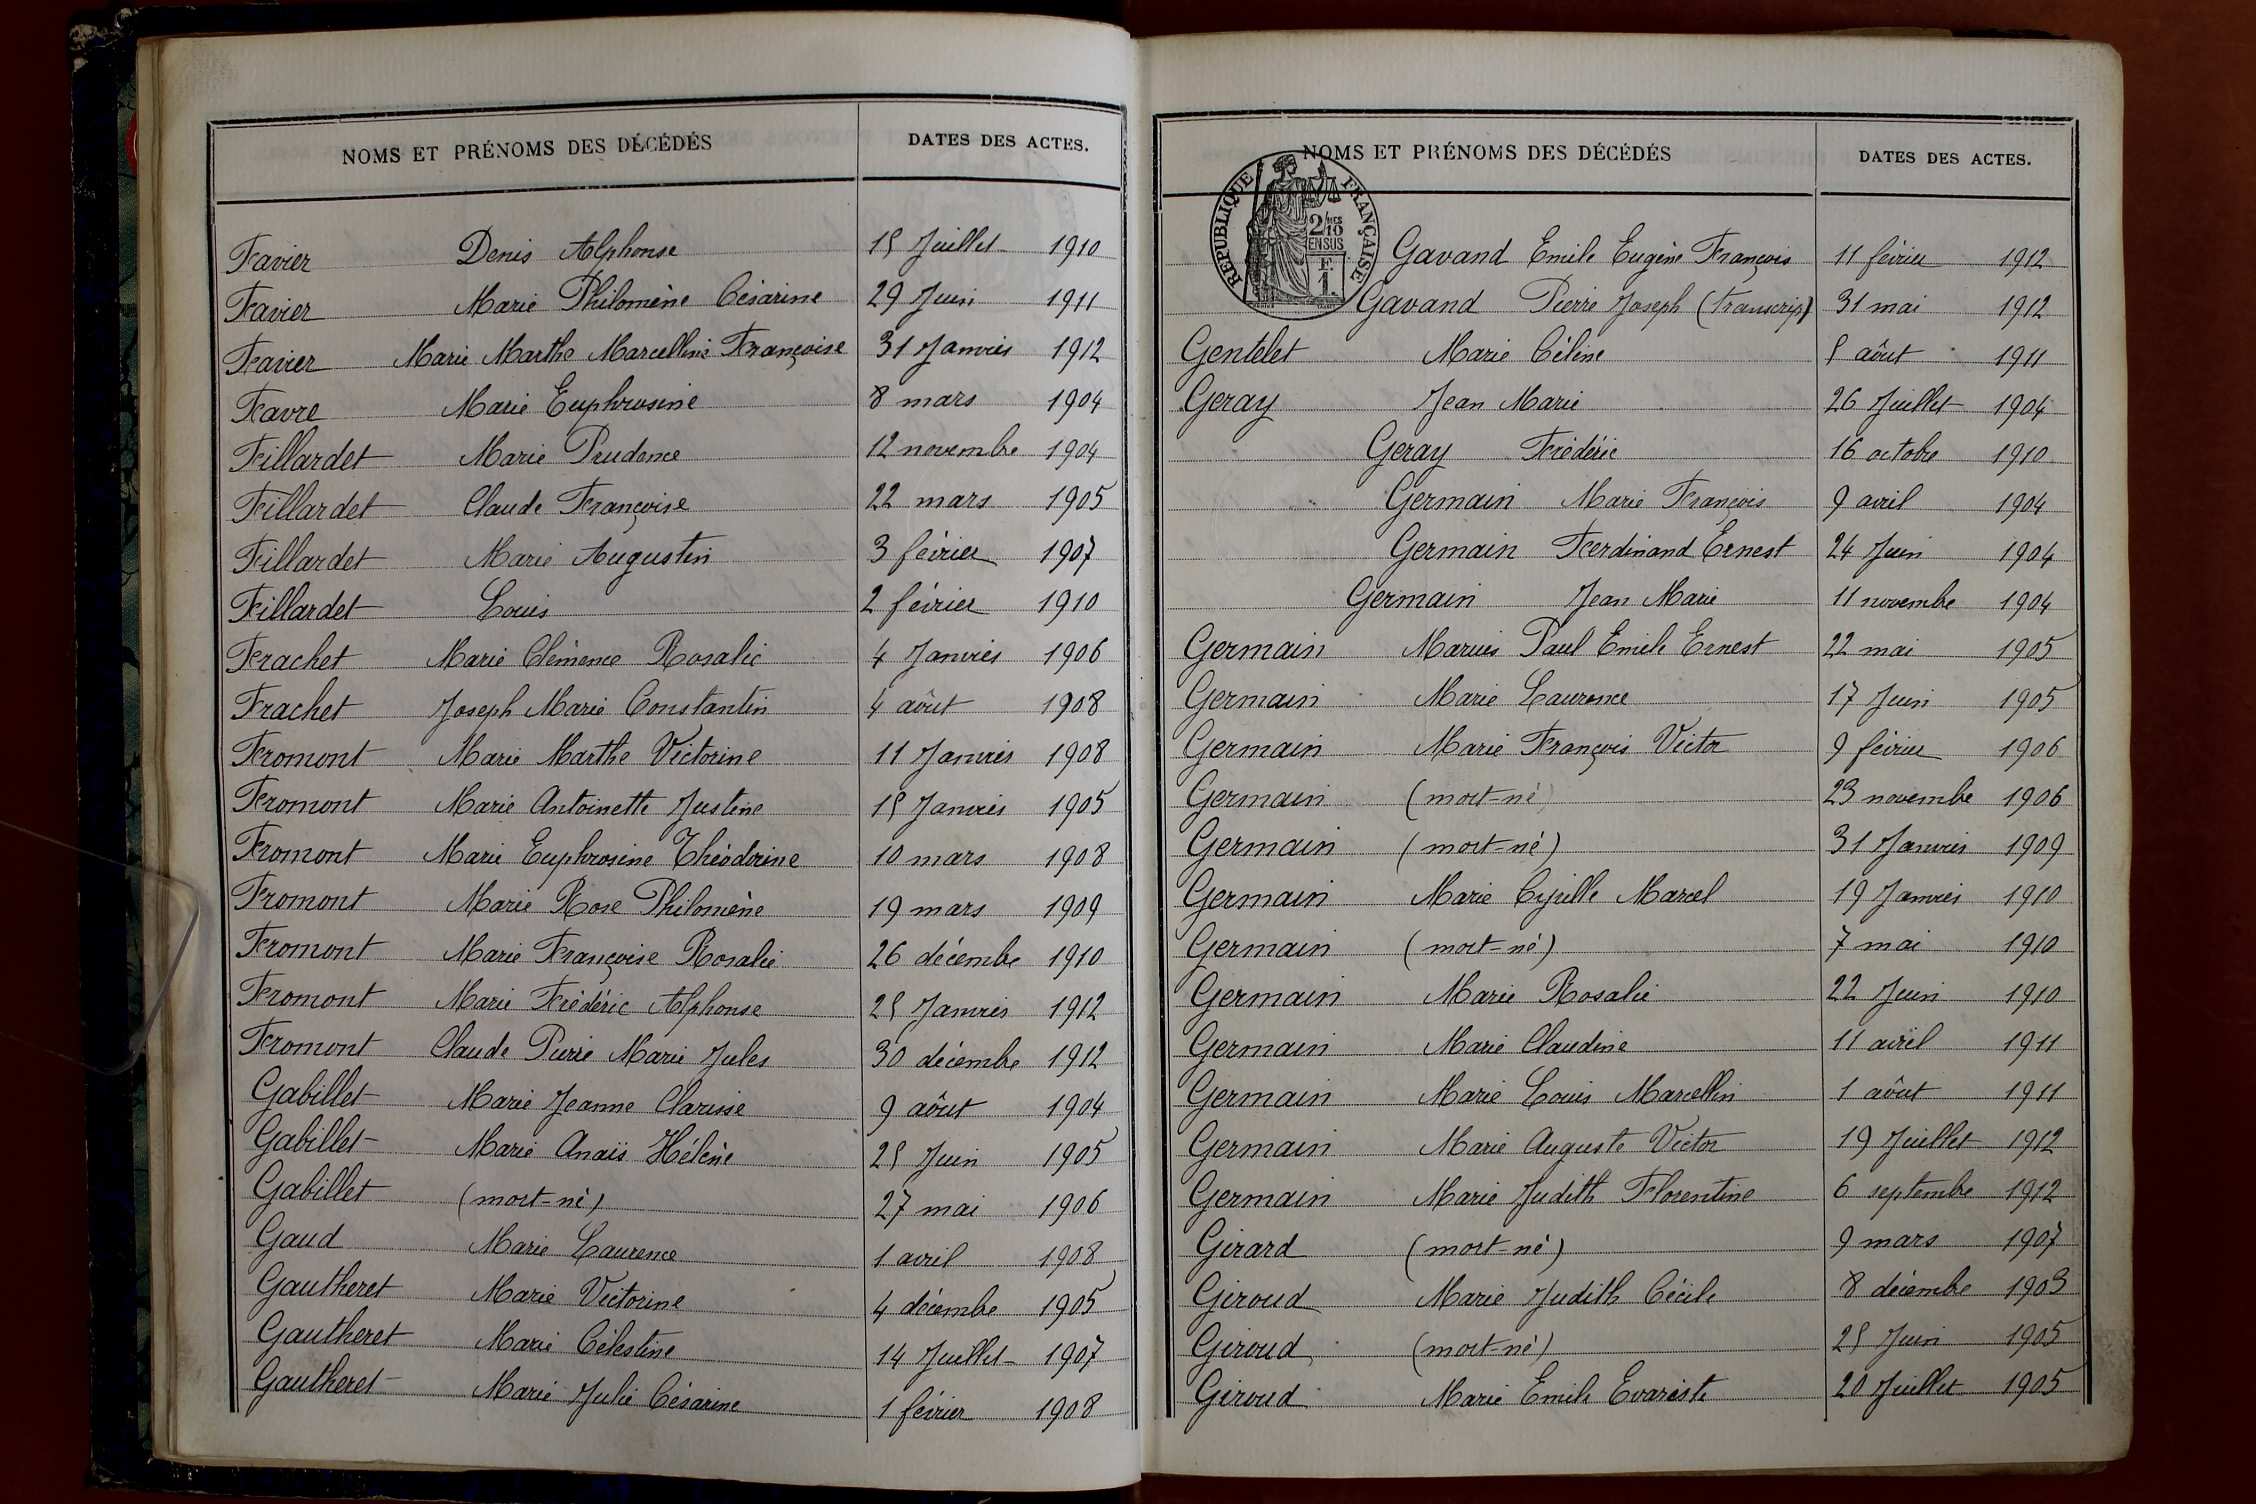 NOMS ET PRÉNOMS DES DÉCÉDÉS DATES DES ACTES.
Favier Denis Alphonse 15 Juillet 1910
Favier Marie Philomène Césarine 29 Juin 1911
Favier Marie Marthe Marcelline Françoise 31 Janvier 1912
Favre Marie Euphrosine 8 mars 1904
Fillardet Marie Prudence 12 novembre 1904
Fillardet Claude Françoise 22 mars 1905
Fillardet Marie Augustin 3 février 1907
Fillardet Louis 2 février 1910
Frachet Marie Clémence Rosalie 4 Janvier 1906
Frachet Joseph Marie Constantin 4 aôut 1908
Fromont Marie Marthe Victorine 11 Janvier 1908
Fromont Marie Antoinette Justine 15 Janvier 1905
Fromont Marie Euphrosine Théodorine 10 mars 1908
Fromont Marie Rose Philomène 19 mars 1909
Fromont Marie Françoise Rosalie 26 décembre 1910
Fromont Marie Frédéric Alphonse 25 Janvier 1912
Fromont Claude Pierre Marie Jules 30 décembre 1912
Gabillet Marie Jeanne Clarisse 9 aôut 1904
Gabillet Marie Anaïs Hélène 25 Juin 1905
Gabillet (mort-né) 27 mai 1906
Gaud Marie Laurence 1 avril 1908
Gautheret Marie Victorine 4 décembre 1905
Gautheret Marie Célestine 14 Juillet 1907
Gautheret Marie Julie Césarine 1 février 1908
NOMS ET PRÉNOMS DES DÉCÉDÉS DATES DES ACTES.
REPUBLIQUE FRANÇAISE
2/10 MES
EN SUS
F.
1.
Gavand Emile Eugène François 11 février 1912
Gavand Pierre Joseph (transcrip) 31 mai 1912
Gentelet Marie Céline 5 aôut 1911
Geray Jean Marie 26 Juillet 1904
Geray Frédéric 16 octobre 1910
Germain Marie François 9 avril 1904
Germain Ferdinand Ernest 24 Juin 1904
Germain Jean Marie 11 novembre 1904
Germain Marius Paul Emile Ernest 22 mai 1905
Germain Marie Laurence 17 Juin 1905
Germain Marie François Victor 9 février 1906
Germain (mort-né) 23 novembre 1906
Germain (mort-né) 31 Janvier 1909
Germain Marie Cyrille Marcel 19 Janvier 1910
Germain (mort-né) 7 mai 1910
Germain Marie Rosalie 22 Juin 1910
Germain Marie Claudine 11 avril 1911
Germain Marie Louis Marcellin 1 aôut 1911
Germain Marie Auguste Victor 19 Juillet 1912
Germain Marie Judith Florentine 6 septembre 1912
Girard (mort-né) 9 mars 1907
Giroud Marie Judith Cécile 8 décembre 1903
Giroud (mort-né) 25 Juin 1905
Giroud Marie Emile Evariste 20 Juillet 1905